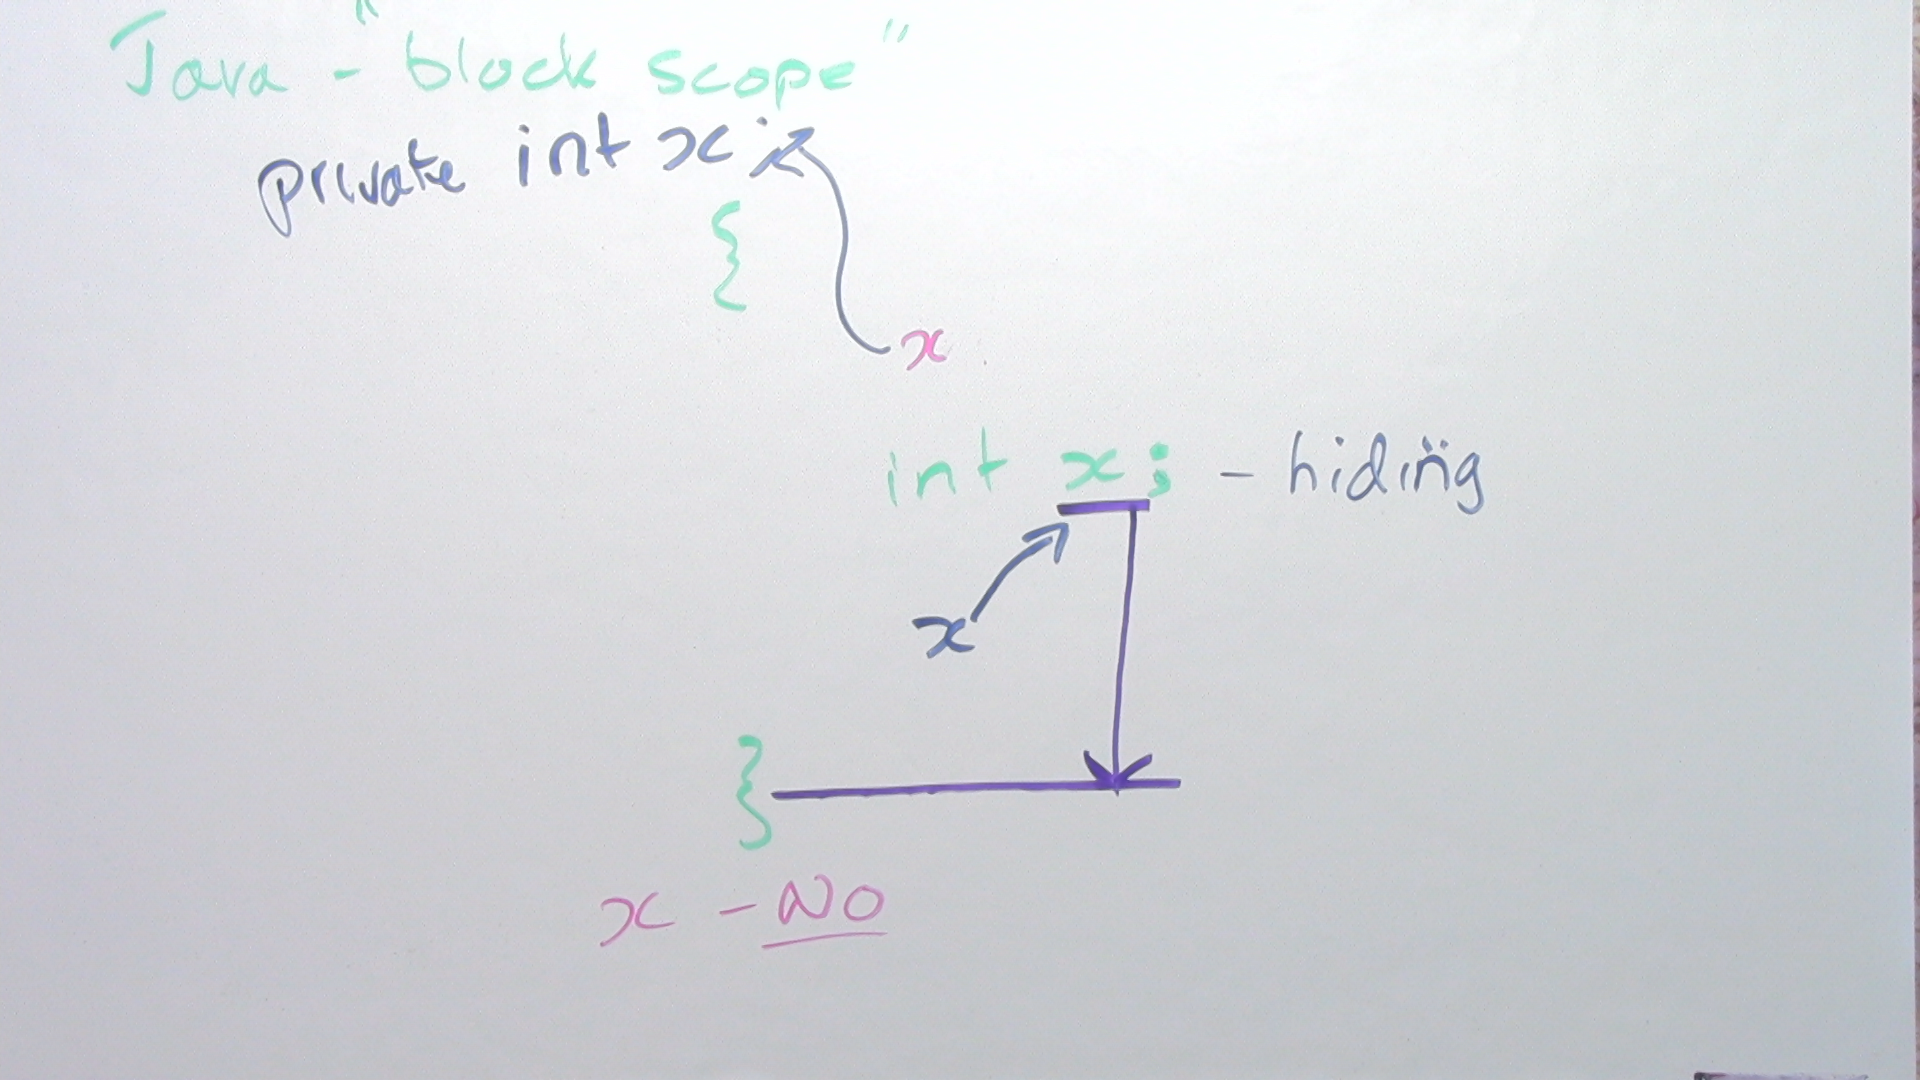 Java - "block scope"
private int x;
{
x
int x; - hiding
x
}
x - NO